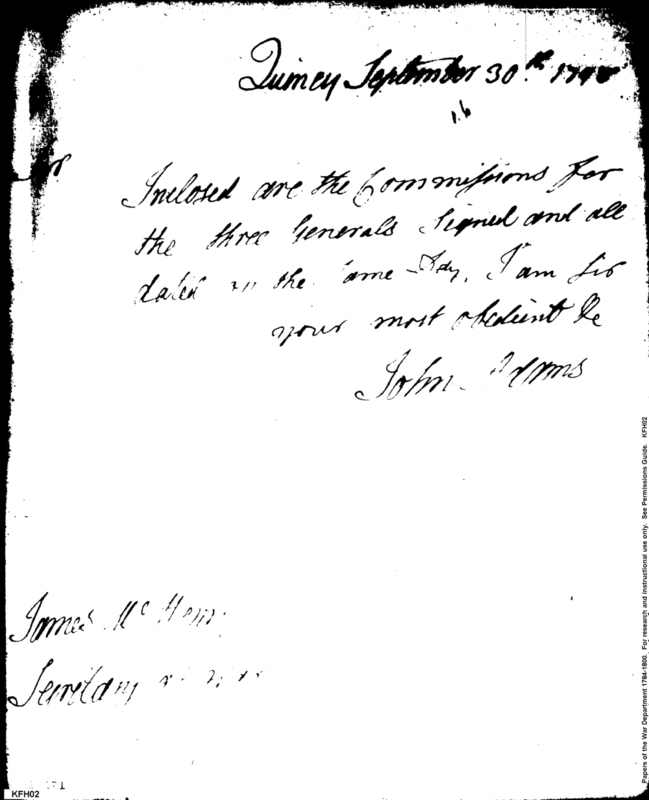 Quincy September 30th 1798
Sir
Inclosed are the Commissions for
the three Generals Signed and all
dated on the same day. I am Sir
your most obedient &c
John Adams
James McHenry
Secretary of War
KFH02
Papers of the War Department 1784-1800. For research and instructional use only. See Permissions Guide. KFH02